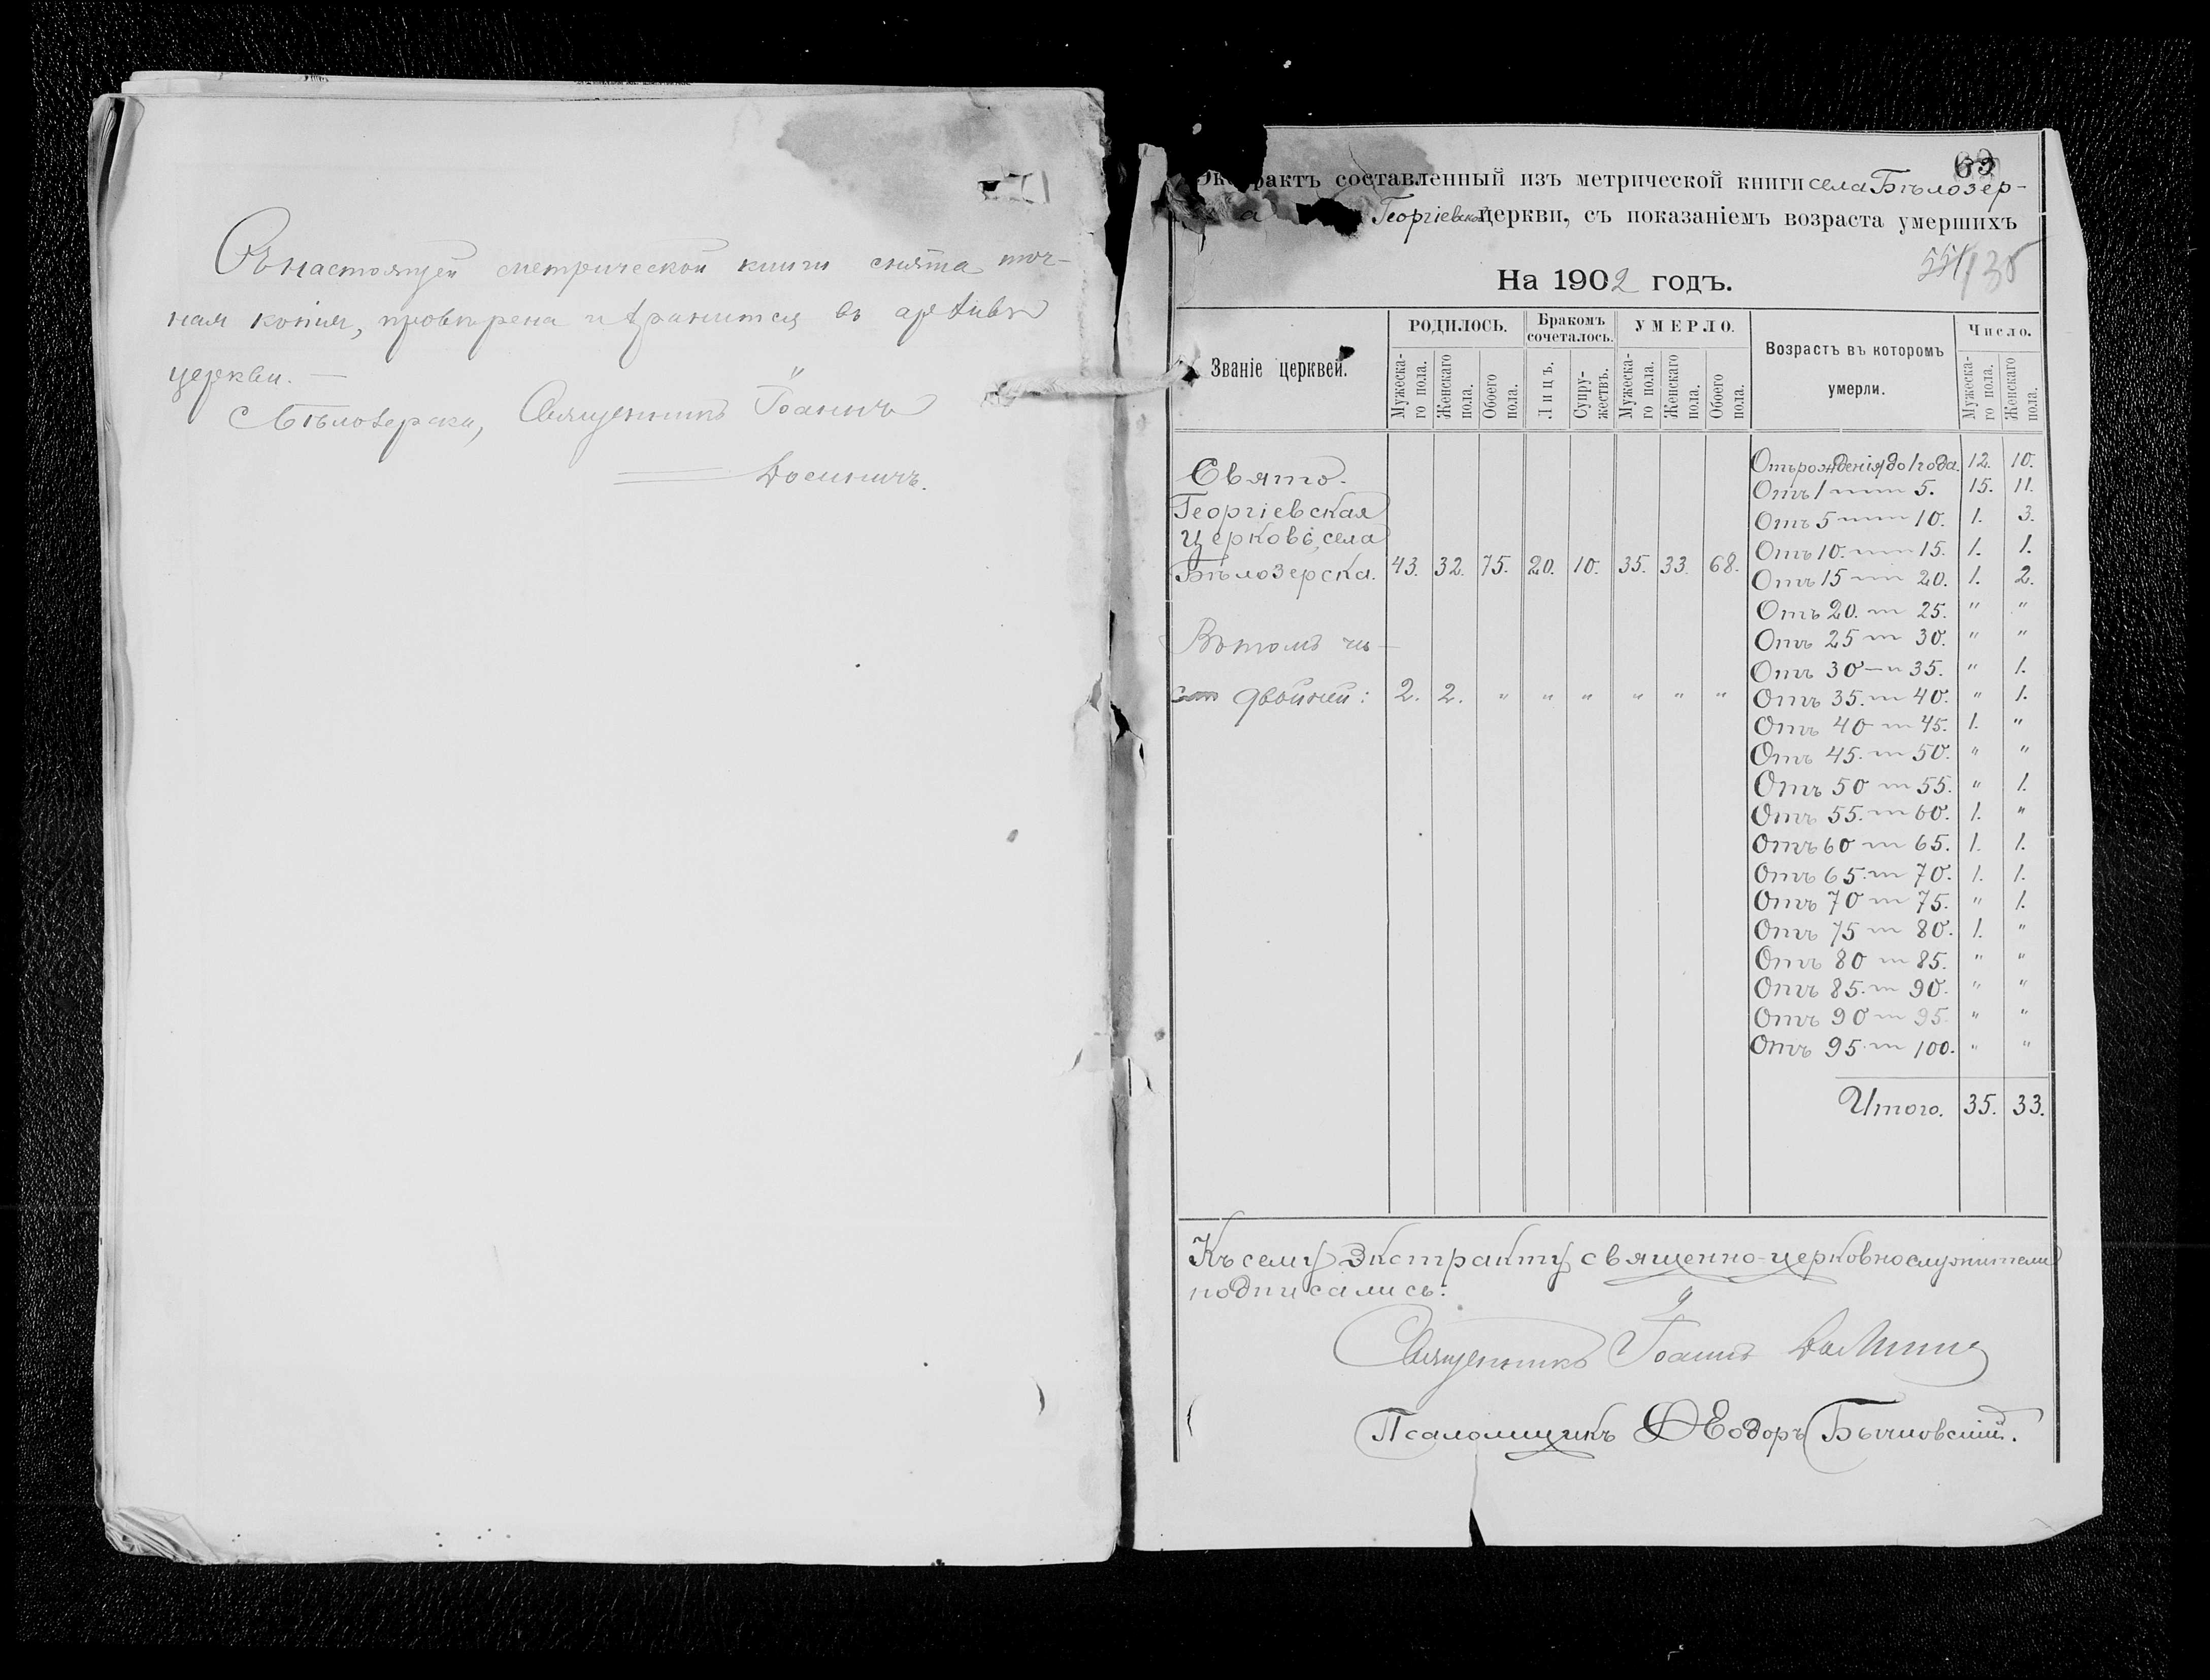 Съ настоящей метрической книги снята точ-
ная копія, провѣрена и хранится въ архивѣ
церкви. —
С. Бѣлозерка, Священникъ Іоаннъ
69
Экстрактъ составленный изъ метрической книги села Бѣлозер-
Георгіевской церкви, съ показаніемъ возраста умершихъ
На 1902 годъ.
Званіе церквей.
РОДИЛОСЬ.
Бракомъ сочеталось.
УМЕРЛО.
Возрастъ въ которомъ умерли.
Число.
Мужеска-го пола.
Женскаго пола.
Обоего пола.
Лицъ.
Супру-жествъ.
Мужеска-го пола.
Женскаго пола.
Обоего пола.
Мужеска-го пола.
Женскаго пола.
Свято-
Георгіевская
Церковь, села
Бѣлозерска. 43. 32. 75. 20. 10. 35. 33. 68.
Въ томъ чи-
двойней: 2. 2. " " " " " "
Отъ рожденія до 1 года. 12. 10.
Отъ 1 — 5. 15. 11.
Отъ 5 — 10. 1. 3.
Отъ 10. — 15. 1. 1.
Отъ 15 — 20. 1. 2.
Отъ 20. — 25. " "
Отъ 25 — 30. " "
Отъ 30 — 35. " 1.
Отъ 35. — 40. " 1.
Отъ 40 — 45. 1. "
Отъ 45. — 50. " "
Отъ 50 — 55. " 1.
Отъ 55. — 60. 1. "
Отъ 60 — 65. 1. 1.
Отъ 65. — 70. 1. 1.
Отъ 70 — 75. " 1.
Отъ 75 — 80. 1. "
Отъ 80 — 85. " "
Отъ 85. — 90. " "
Отъ 90 — 95. " "
Отъ 95. — 100. " "
Итого. 35. 33.
Къ сему экстракту священно-церковнослужители
подписались:
Священникъ Іоаннъ
Псаломщикъ Ѳеодоръ